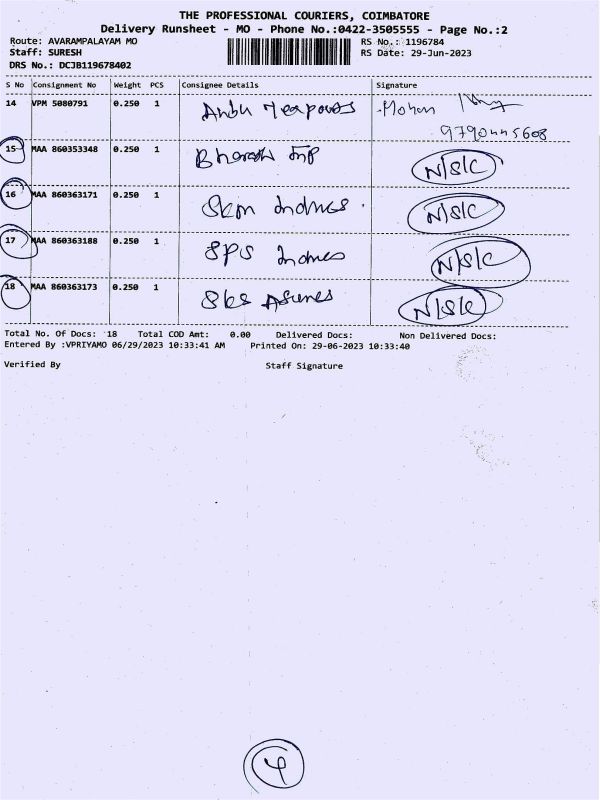 THE PROFESSIONAL COURIERS, COIMBATORE
Delivery Runsheet - MO - Phone No.:0422-3505555 - Page No.:2
Route: AVARAMPALAYAM MO RS No.: 1196784
Staff: SURESH RS Date: 29-Jun-2023
DRS No.: DCJB119678402
S No Consignment No Weight PCS Consignee Details Signature
14 VPM 5080791 0.250 1 Anbu Mohan
15 MAA 860353348 0.250 1 Bharath N/S/C
16 MAA 860363171 0.250 1 Skm N/S/C
17 MAA 860363188 0.250 1 SPS N/S/C
18 MAA 860363173 0.250 1 Sks N/S/C
Total No. Of Docs: 18 Total COD Amt: 0.00 Delivered Docs: Non Delivered Docs:
Entered By :VPRIYAMO 06/29/2023 10:33:41 AM Printed On: 29-06-2023 10:33:40
Verified By Staff Signature